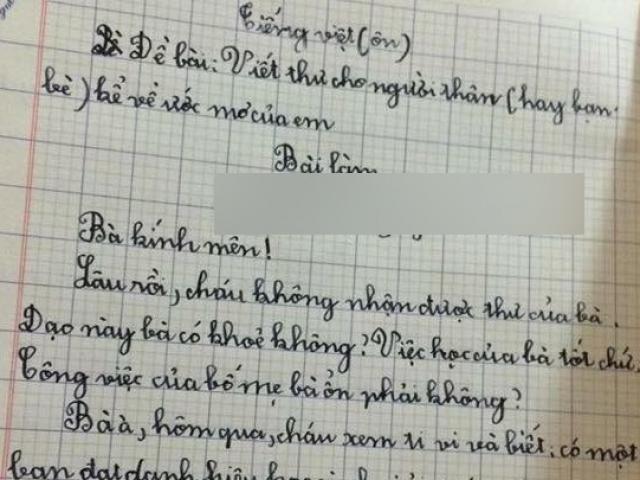 Tiếng việt (ôn)
Đề bài: Viết thư cho người thân (hay bạn
bè) kể về ước mơ của em
Bài làm
Bà kính mến!
Lâu rồi, cháu không nhận được thư của bà.
Dạo này bà có khoẻ không? Việc học của bà tốt chứ.
Công việc của bố mẹ bà ổn phải không?
Bà à, hôm qua, cháu xem ti vi và biết: có một
bạn đạt danh hiệu